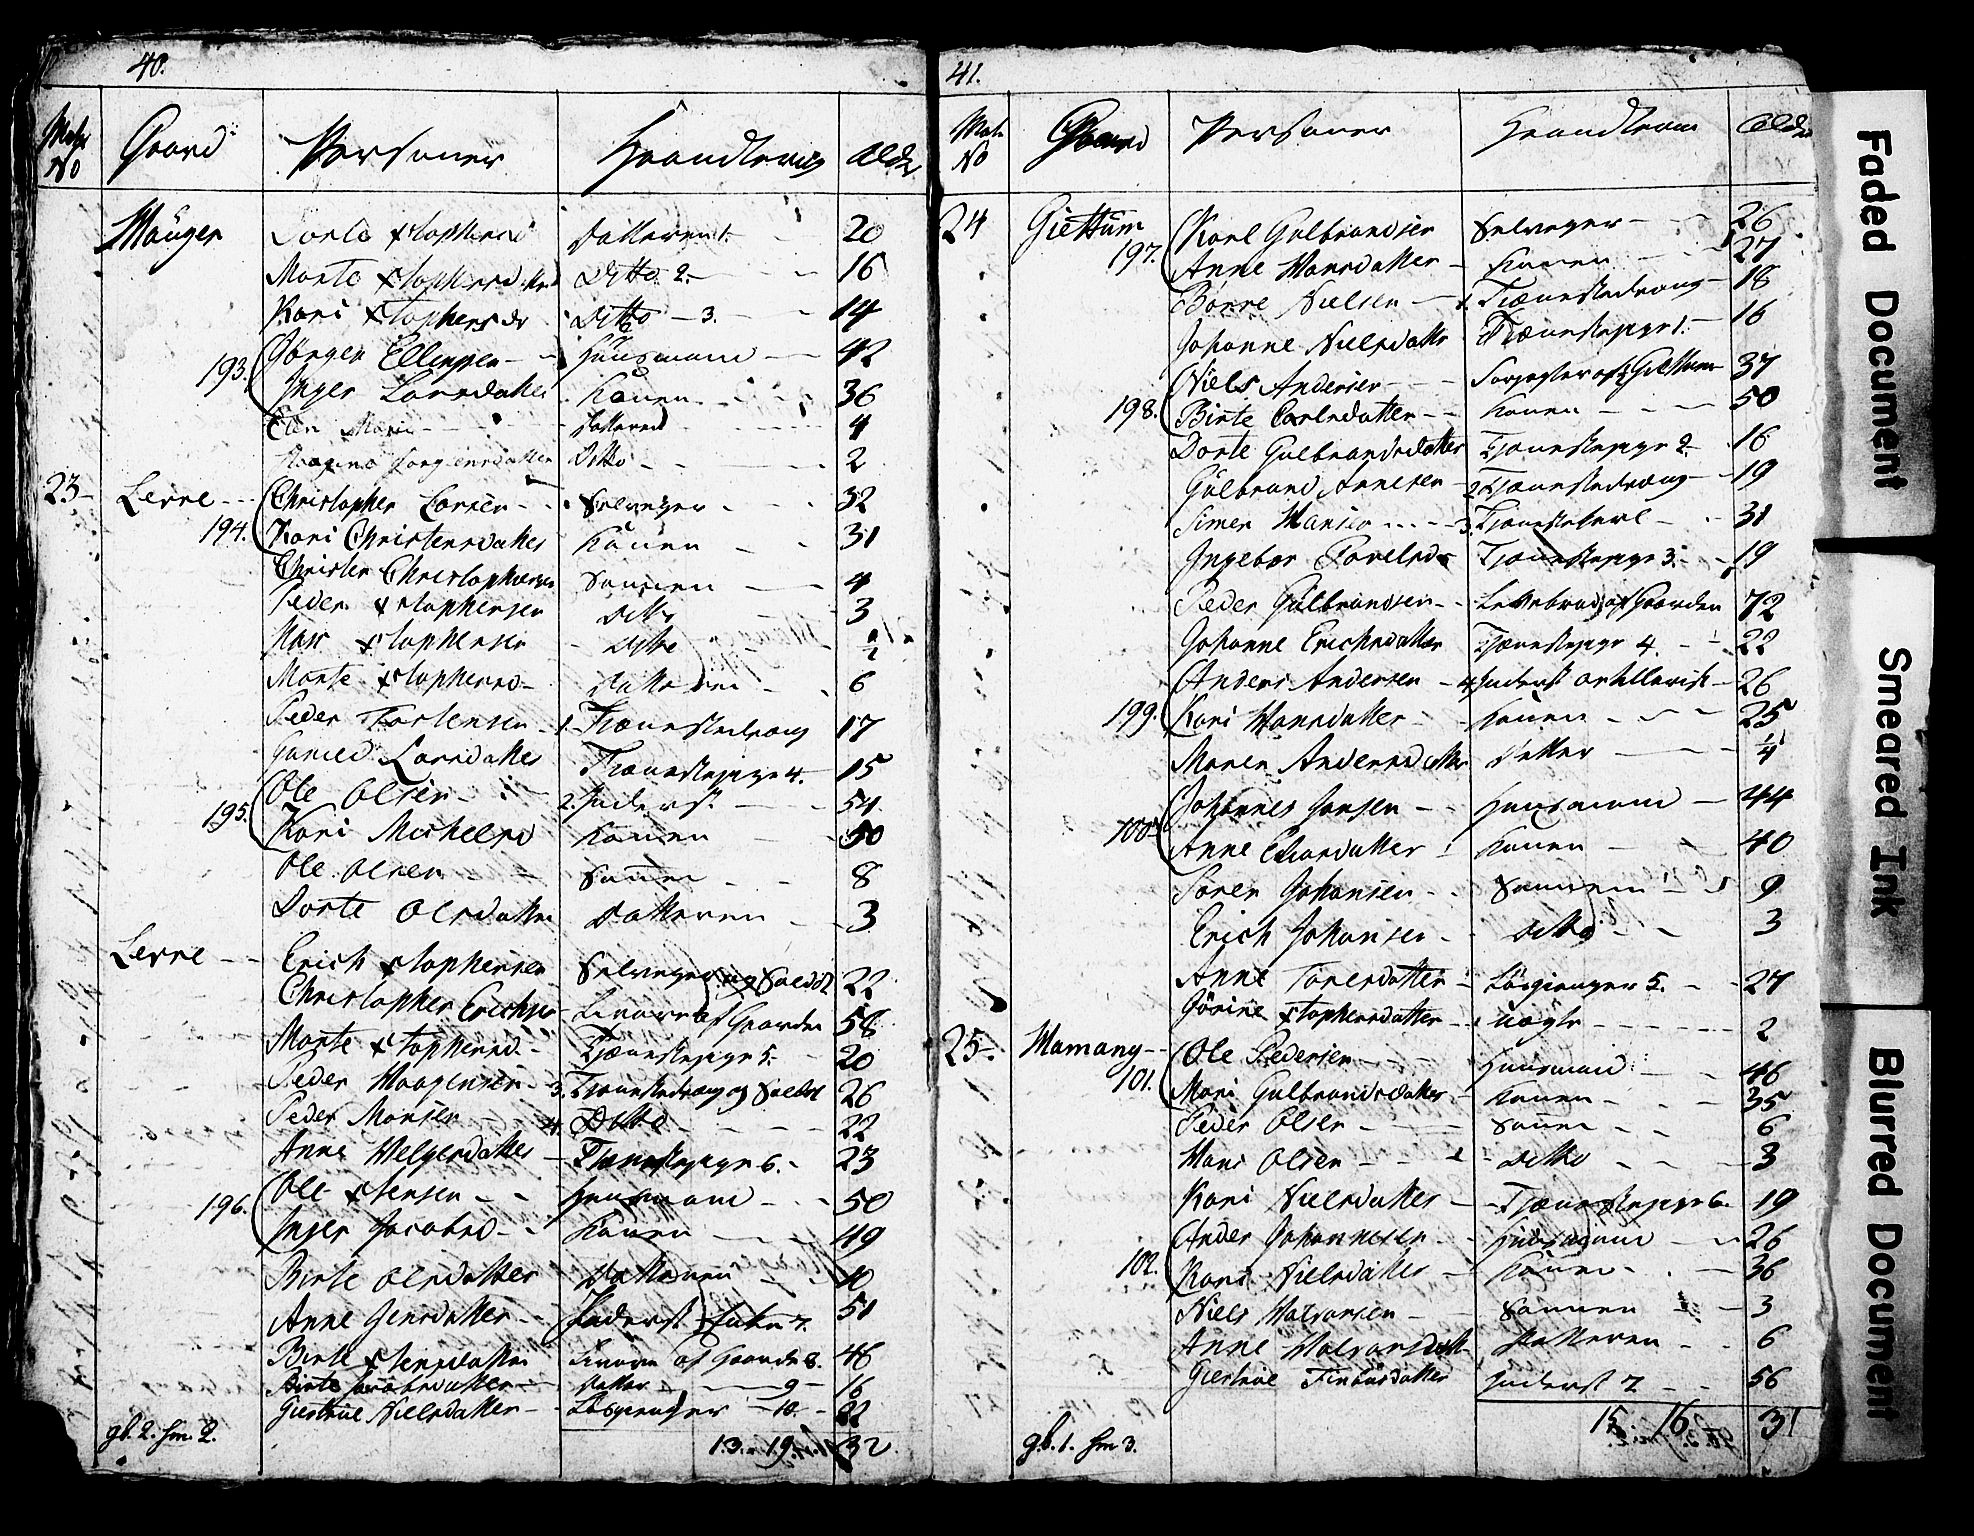 40.
Matr No Gaard Personer Haandtering Alder
Mauger Dorte Xstophersd Datteren 1. 20
Marte Xstophersdatter Ditto 2. 16
Kari Xstophersdr Ditto 3. 14
193. Jörgen Ellingsen Huusmand 42
Inger Larsdatter Konen 36
Marie Datteren 4
Jörgensdatter Ditto 2
23 Lerre Christopher Larsen Selveyer 32
194. Kari Christensdatter Konen 31
Christen Christophersen Sönnen 4
Peder Xstophersen Ditto 3
Hans Xstophersen Ditto ½
Marte Xstophersd Datteren 6
Peder Torstensen 1. Tienestedreng 17
Larsdatter Tienestepige 4. 15
195. Ole Olsen 2. Inderst 54
Kari Michelsd Konen 50
Ole Olsen Sönnen 8
Dorte Olsdatter Datteren 3
Lerre Erich Xstophersen Selveyer og Soldat 22
Christopher Erichsen af Gaarden 58
Marte Xstophersd. Tjenestepige 5. 20
Peder Haagensen 3. Tjenestedreng og Soldat 26
Peder Monsen 4 Ditto 22
Anne Helgesdatter Tjenestepige 6. 23
196. Ole Jensen Huusmand 50
Inger Jacobsd Konen 49
Birte Olsdatter Datteren 10
Anne Jensdatter Inderst Enke 7. 51
Birte Xstensdatter af Gaarden 8. 46
Birte Jacobsdatter Datter 9 16
Giertrue Nielsdatter Lösgienger 10. 22
gb. 2. hm. 2.
13. 19. 32
41.
Matr No Gaard Personer Haandtering Alder
24 Giettum Karl Gulbrandsen Selveyer 26
197. Anne Hansdatter Konen 27
Börre Nielsen 1. Tienestedreng 18
Johanne Nielsdatter Tienestepige 1. 16
Niels Andersen Forpagter af ½ Giettum 37
198. Birte Carlsdatter Konen 50
Dorte Gulbrandsdatter Tjenestepige 2. 16
Gulbrand Arnesen 2 Tjenestedreng 19
Simen Hansen 3. Tjenestekarl 31
Ingebor Povelsdr Tjenestepige 3. 19
Peder Gulbrandsen af Gaarden 72
Johanne Erichsdatter Tjenestepige 4. 22
Anders Andersen 4 Inderst Artillerist 26
199. Kari Hansdatter Konen 25
Maren Andersdatter Datter ¼
Johannes Jonsen Huusmand 44
100 Anne Datter Konen 40
Soren Johansen Sönnen 9
Erich Johansen Ditto 3
Anne Toresdatter Lösgienger 5. 27
Görine Xstophersdatter uægte 2
25. Hamang Ole Pedersen Huusmand 46
101. Mari Gulbrandsdatter Konen 35
Peder Olsen Sönnen 6
Hans Olsen Ditto 3
Kari Nielsdatter Tjenestepige 6. 19
Ander Johannesen Huusmand 26
102. Kari Nielsdatter Konen 36
Niels Halvorsen Sönnen 3
Anne Halvorsdatt Datteren 6
Giertrue Datter Inderst 7 56
gb. 1. hm 3.
15 16. 31
Faded Document
Smeared Ink
Blurred Document